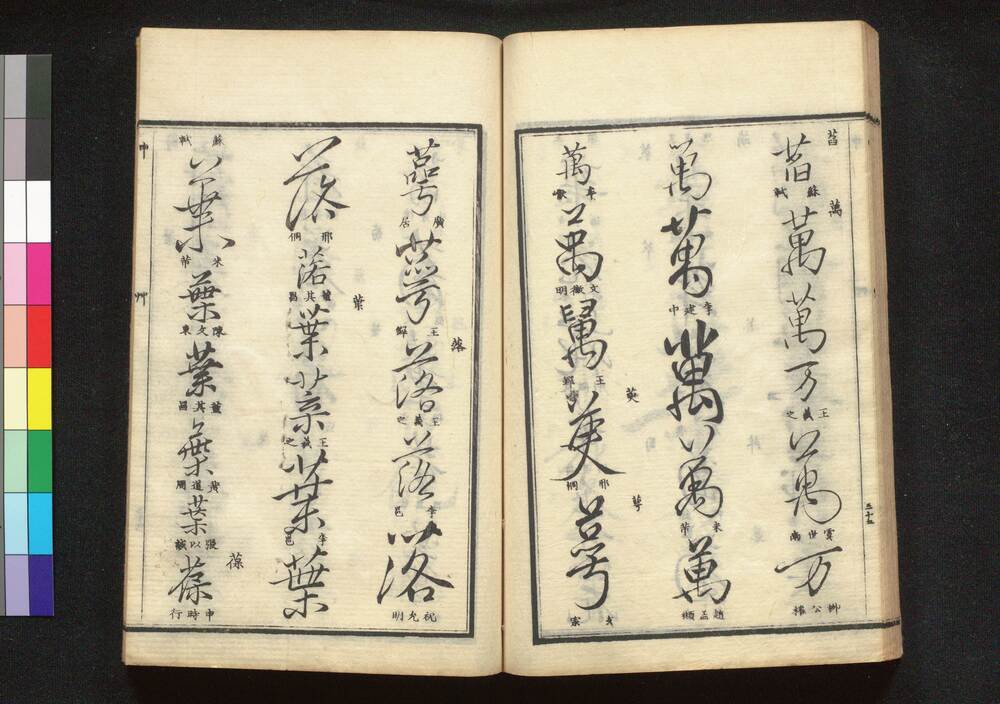 萬 萬 蘇軾 萬 萬 万 王羲之 萬 虞世南 万 柳公權
三十五
萬 萬 李建中 萬 萬 米芾 萬 趙孟頫
萬 文徵明 萬 王鐸 萸 萸 邢侗 萼 萼
艸
萼 廣居 萼 王鐸 落 落 王羲之 落 李邕 落 祝允明
落 邢侗 落 董其昌 葉 葉 葉 王羲之 葉 李邕 葉
蘇軾 葉 米芾 葉 陳文東 葉 董其昌 葉 黃道周 葉 張以誠 葆 葆 申時行
中
艸